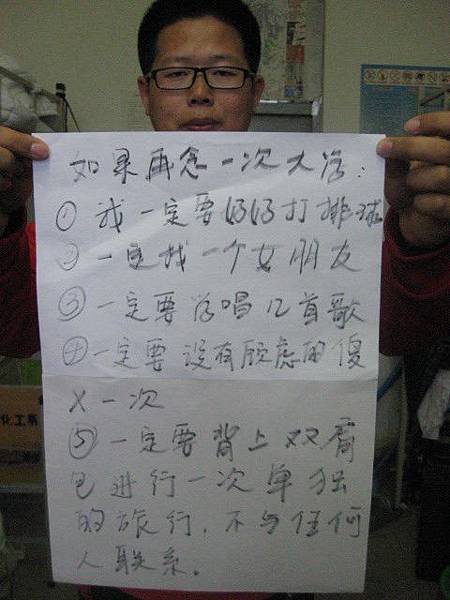 如果再念一次大学:
① 我一定要好好打排球
② 一定找一个女朋友
③ 一定要学唱几首歌
④ 一定要没有顾虑的傻
X一次
⑤ 一定要背上双肩
包进行一次单独
的旅行，不与任何
人联系。
化工系